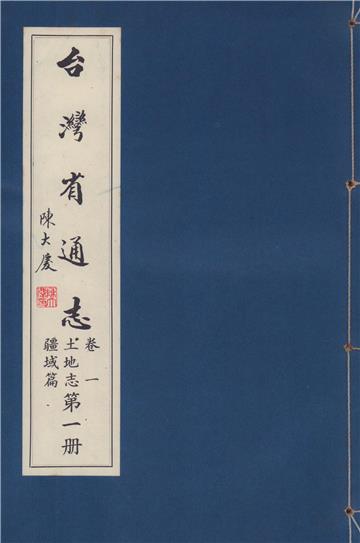 台灣省通志
卷一
土地志
疆域篇
第一册
陳大慶